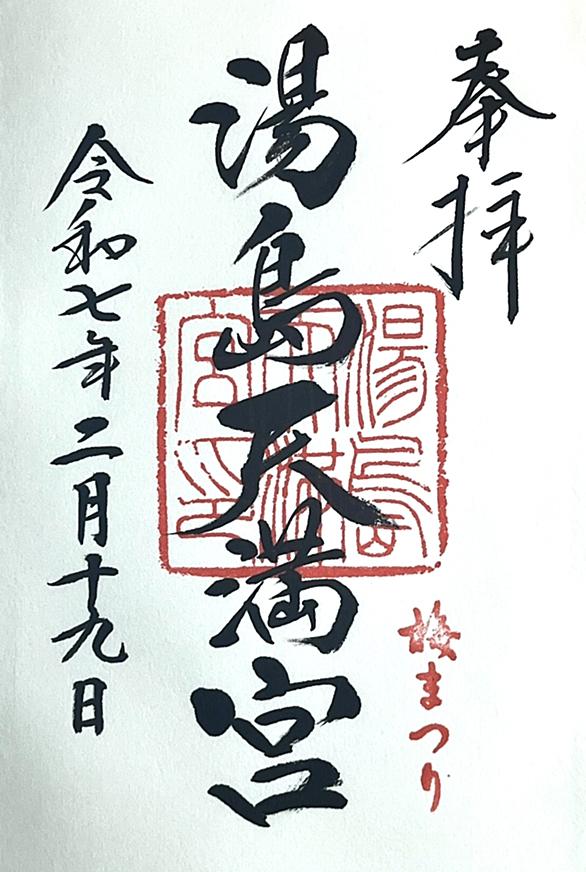 奉拝
梅まつり
湯島天満宮
湯島
天満
宮印
令和七年二月十九日